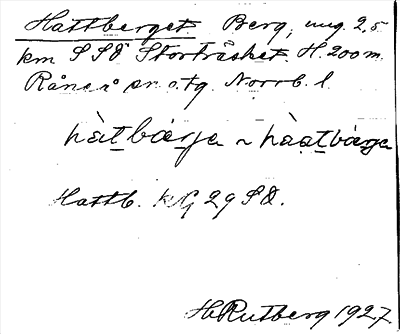 Hattberget. Berg, ung. 2,5
km SSÖ Storträsket. H. 200 m.
Råneå sn o. tg. Norrb. l.
hàt̲bær̲ja ~ hàat̲bær̲ja
Hattb. kG 29 SÖ.
H. Rutberg 1927.